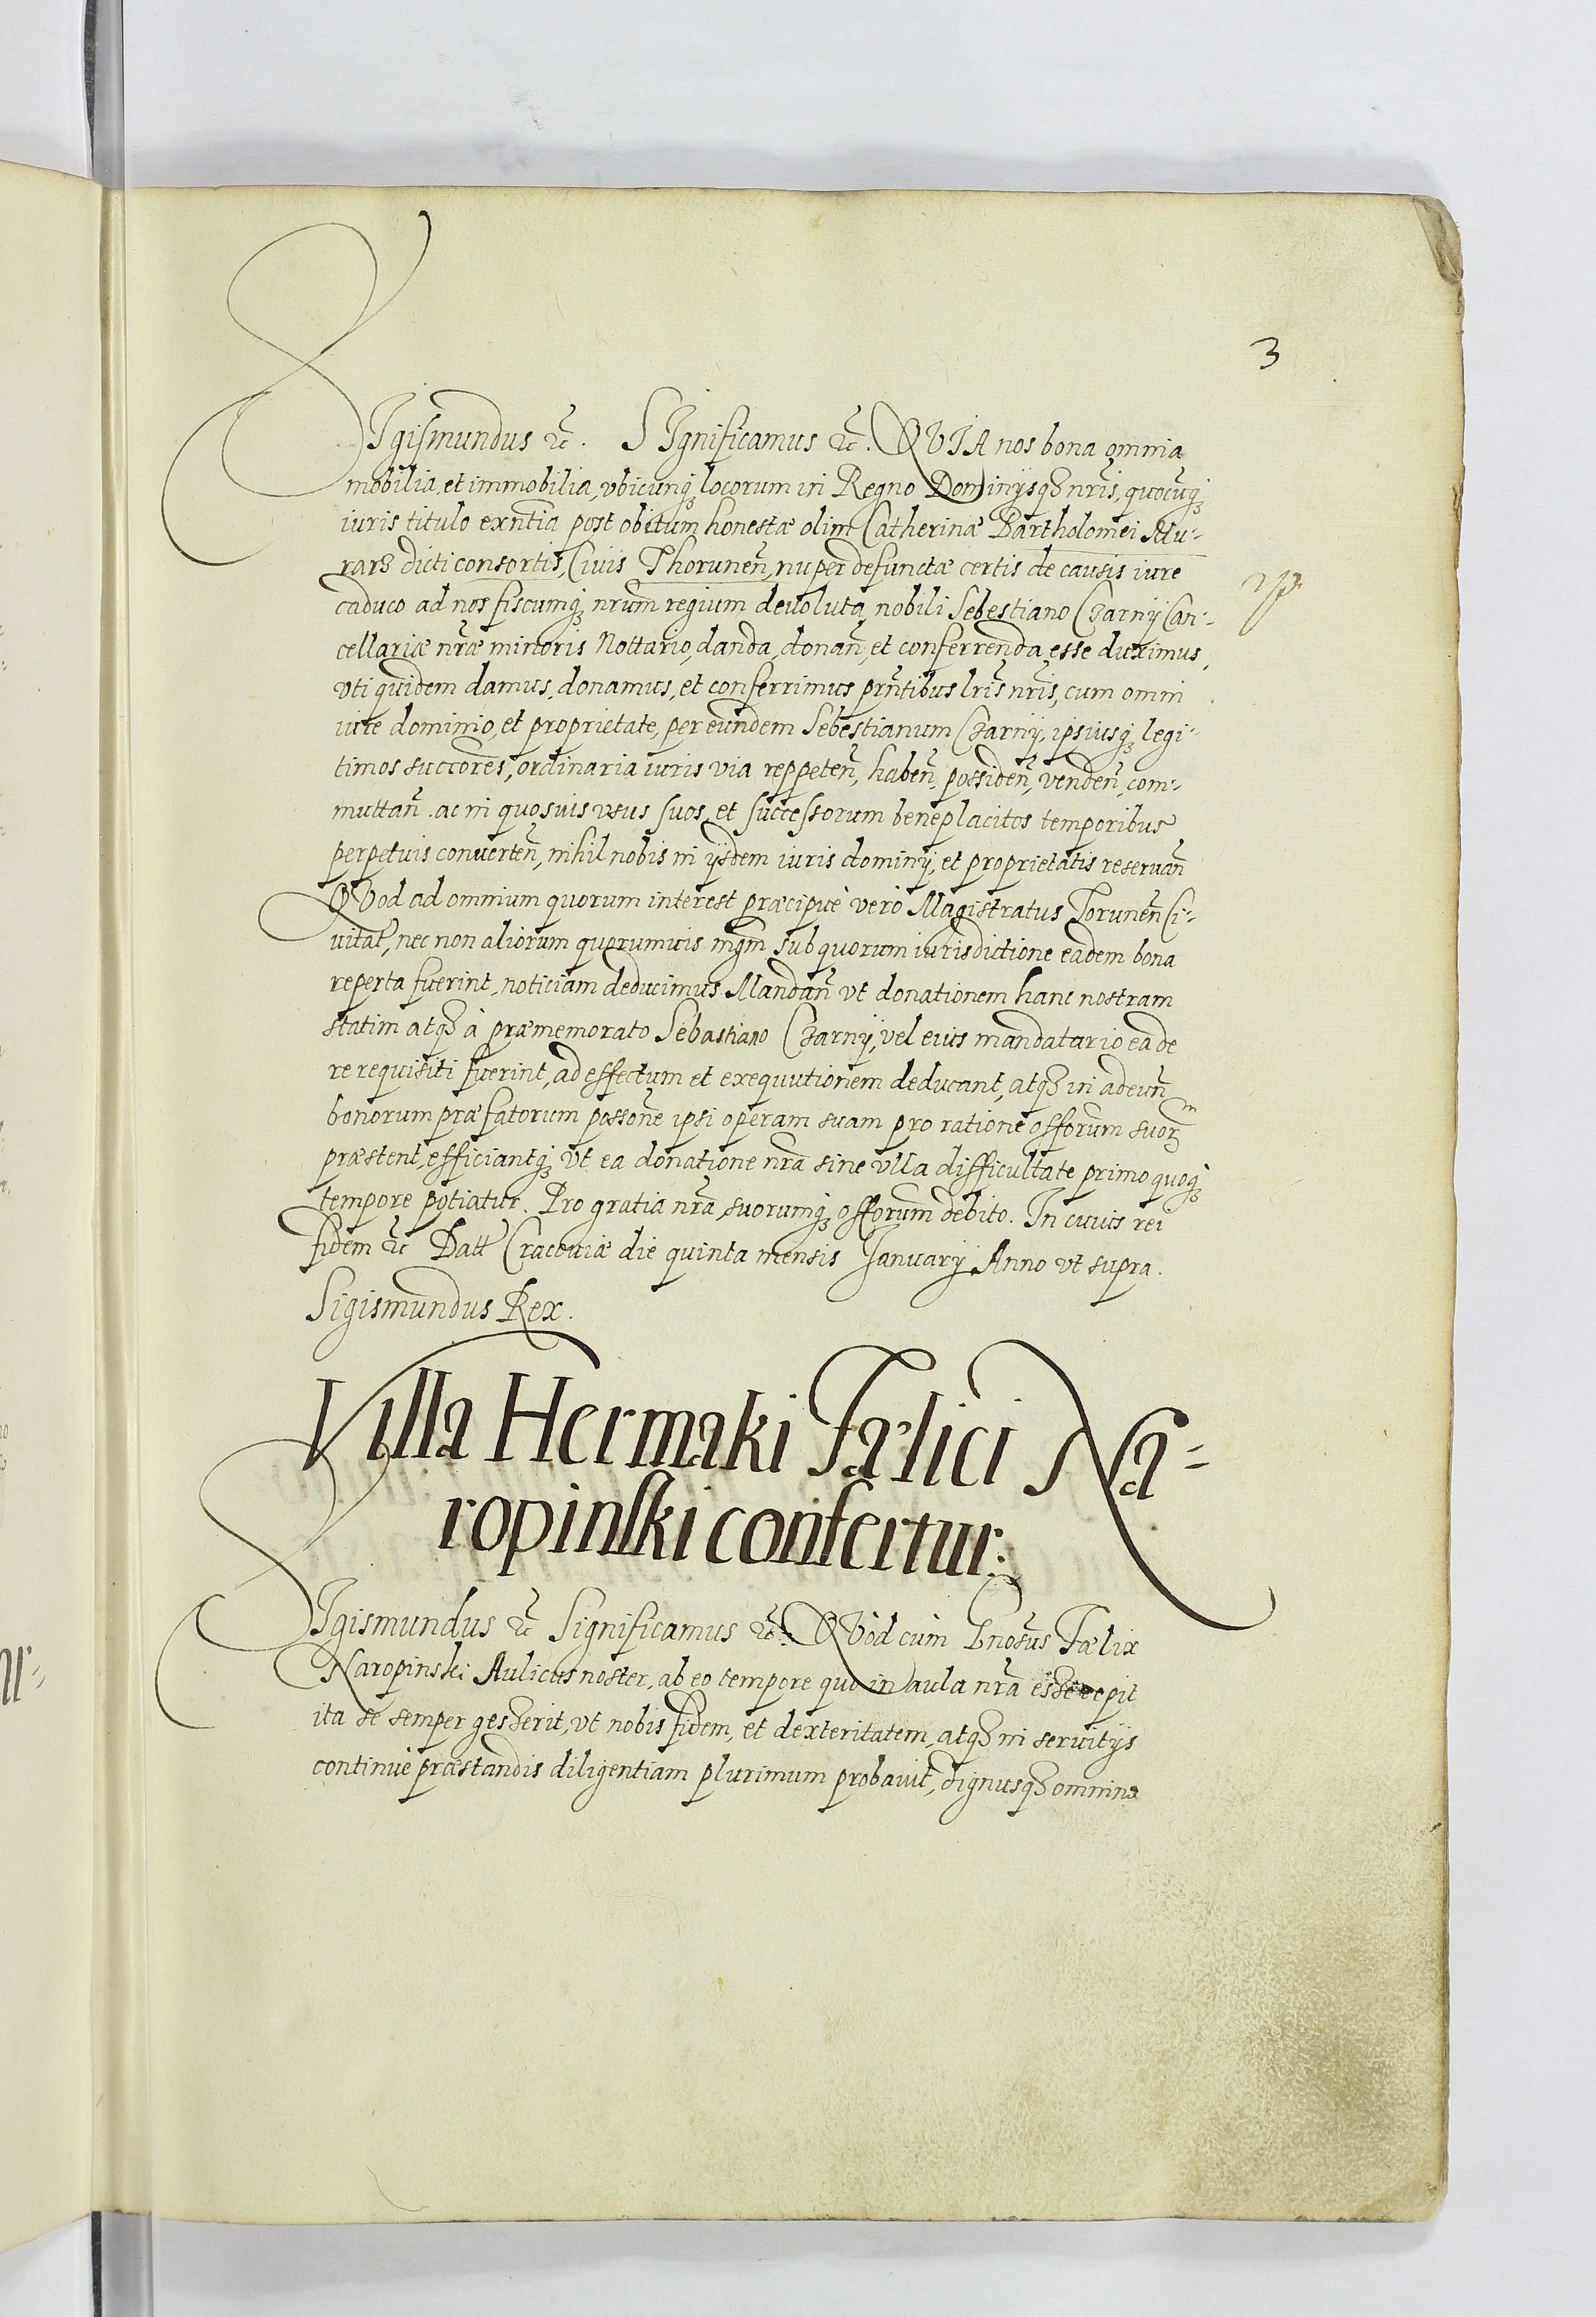 3
SIgismundus etc̃. SIgnificamus etc̃. QVIA nos bona omnia
mobilia, et immobilia, vbicunq₃ locorum in Regno Dominijsq₃ nr̃is, quocũq₃
iuris titulo exñtia post obitum honestæ olim Catherinæ Bartholomei Mu-
rarz dicti consortis, Ciuis Thorunen̄, nuper defunctæ certis de causis iure
caduco ad nos fiscumq₃ nrũm regium deuoluta, nobili Sebestiano Czarnÿ Can-
cellariæ nr̃æ minoris Nottario, danda, donañ, et conferrenda, esse duximus,
vti quidem damus, donamus, et conferrimus prñtibus lr̃is nr̃is, cum omni
iure dominio, et proprietate, per eundem Sebestianum Czarnÿ, ipsiusq₃ legi-
timos succõres, ordinaria iuris via reppeteñ, habeñ, possideñ, vendeñ, com-
muttañ. ac in quosuis vsus suos, et successorum beneplacitos temporibus
perpetuis conuerteñ, nihil nobis in ijsdem iuris dominij, et proprietatis reseruañ
QVod ad omnium quorum interest præcipuè verò Magistratus Torunen̄ Ci-
uitat̃, nec non aliorum quorumuis mgr̃m sub quorum iurisdictione eadem bona
reperta fuerint, noticiam deducimus Mandañ vt donationem hanc nostram
statim atq₃ à præmemorato Sebastiano Czarnÿ, vel eius mandatario ea de
re requisiti fuerint, ad effectum et exequutionem deducant, atq₃ in adeuñ
bonorum præfatorum possoñe ipsi operam suam pro ratione offorũm suorm̃
præstent, efficiantq₃ vt ea donatione nr̃a sine vlla difficultate primo quoq₃
tempore potiatur. Pro gratia nr̃a, suorumq₃ offorũm debito. In cuius rei
fidem etc̃ Datt Cracouiæ die quinta mensis Ianuarij Anno vt supra.
Sigismundus Rex.
Villa Hermaki Fælici Na-
ropinski confertur:
SIgismundus etc̃ Significamus etc̃: QVòd cùm Gnosũs Fælix
Naropinski Aulicus noster, ab eo tempore quo in aula nr̃a esse cepit
ita se semper gesserit, vt nobis fidem, et dexteritatem, atq₃ in seruitijs
continuè præstandis diligentiam plurimum probauit, dignusq₃ omnino